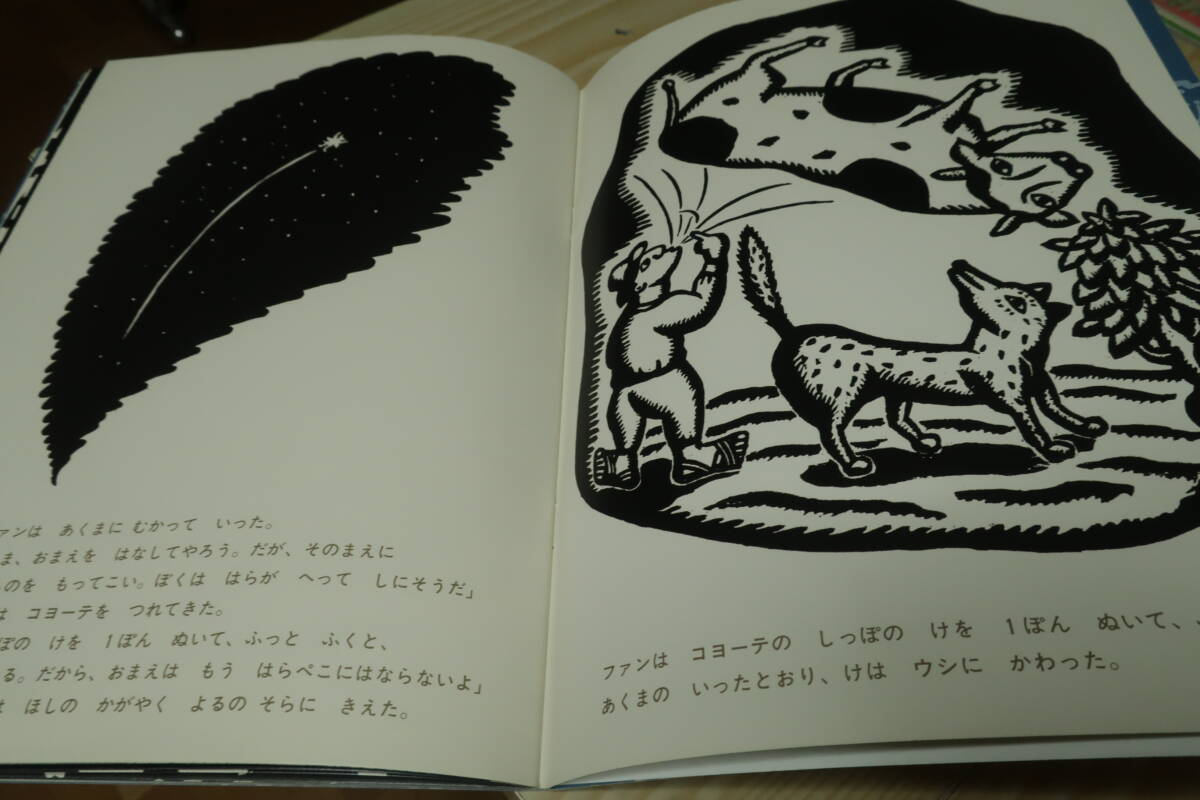 ァンは　あくまに むかって　いった。
ま、おまえを　はなしてやろう。だが、そのまえに
ものを　もってこい。ぼくは　はらが　へって　しにそうだ」
は　コヨーテを　つれてきた。
ぽの　けを　1ぽん　ぬいて、ふっと　ふくと、
る。だから、おまえは　もう　はらぺこにはならないよ」
は　ほしの　かがやく　よるの そらに　きえた。
ファンは　コヨーテの　しっぽの　けを　1ぽん　ぬいて、
あくまの　いったとおり、けは　ウシに　かわった。